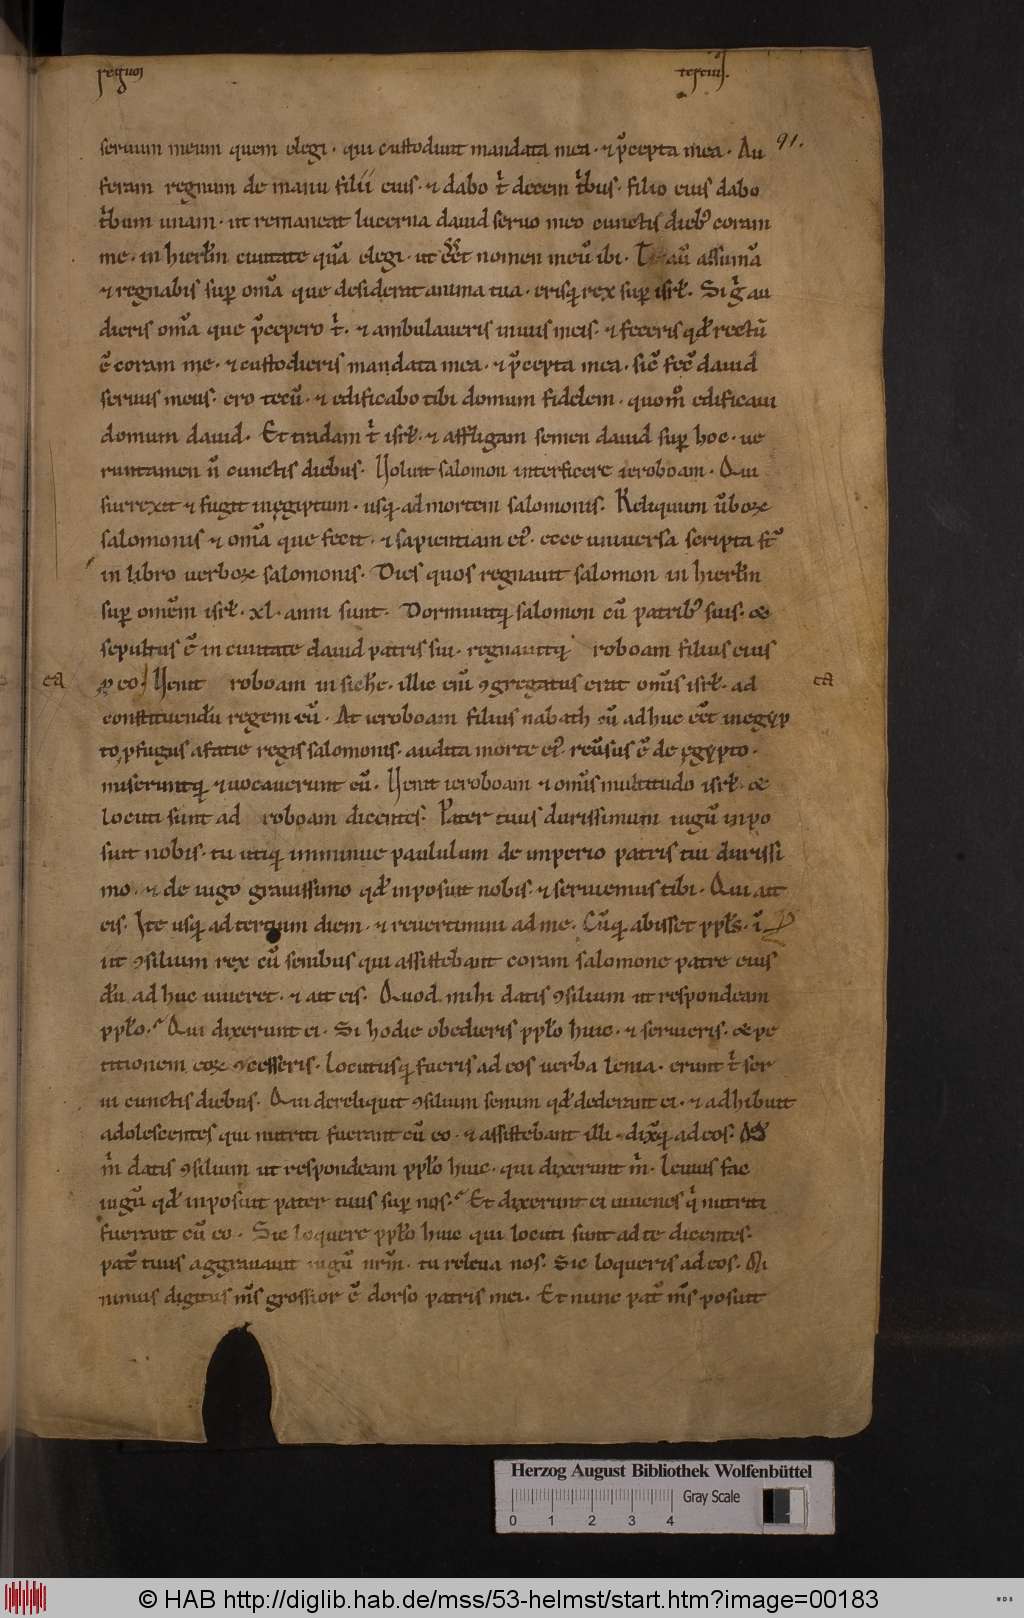 regum terciu.
91.
seruum meum quem elegi. qui custodiuit mandata mea. ⁊ p̄cepta mea. Au
feram regnum de manu filíí eius. ⁊ dabo t̄ decem t̄bus. filio eius dabo
t̄bum unam. ut remaneat lucerna dauid seruo meo cunctis dieb; coram
me. in hierłm ciuitate quā elegi. ut eēt nomen meū ibi. Te aū assumā
⁊ regnabis sup om̄a que desiderat anima tua. erisq; rex sup isrł. Si g̊ au
dieris om̄a que p̄cepero t̄. ⁊ ambulaueris in uiis meis. ⁊ feceris qđ rectū
ē coram me. ⁊ custodieris mandata mea. ⁊ p̄cepta mea. sic̄ fec̄ dauid
seruus meus. ero tecū. ⁊ edificabo tibi domum fidelem. quom̊ edificaui
domum dauid. Et tradam t̄ isrł. ⁊ affligam semen dauid sup hoc. ue
runtamen ñ cunctis diebus. Uoluit salomon interficere ieroboam. Qui
surrexit ⁊ fugit in ęgiptum. usq; ad mortem salomonis. Reliquum ūboꝝ
salomonis ⁊ om̄a que fecit. ⁊ sapientiam ei᷒. ecce uniuersa scripta st̄
in libro uerboꝝ salomonis. Dies quos regnauit salomon in hierłm
sup omēm isrł. xl. anni sunt. Dormiuitq; salomon cū patrib; suis. &
sepultus ē in ciuitate dauid patris sui. regnauitq; roboam filius eius
ca ꝓ eo. Uenit roboam in sichē. illic eni̅ ꝯgregatus erat om̄s isrł. ad ca
constituendū regem eū. At ieroboam filius nabath cū ad huc eēt in egyp
to ꝓfugus a facie regis salomonis. audita morte ei᷒. reūsus ē de ęgypto.
miseruntq; ⁊ uocauerunt eū. Uenit ieroboam ⁊ om̄s multitudo isrł. &
locuti sunt ad roboam dicentes. Pater tuus durissimum iugū inpo
suit nobis. tu itaq; imminue paululum de imperio patris tui durissi
mo. ⁊ de iugo grauissimo qđ inposuit nobis. ⁊ seruiemus tibi. Qui ait
eis. Ite usq; ad tertium diem. ⁊ reuertimini ad me. Cūq; abisset ppłs. i̅
iit ꝯsilium rex cū senibus qui assistebant coram salomone patre eius
dū ad huc uiueret. ⁊ ait eis. Quod mihi datis ꝯsilium ut respondeam
ppło. Qui dixerunt ei. Si hodie obedieris ppło huic. ⁊ seruieris. & pe
titionem eoꝝ ꝯcesseris. locutusq; fueris ad eos uerba lenia. erunt t̄ ser
ui cunctis diebus. Qui dereliquit ꝯsilium senum qđ dederant ei. ⁊ adhibuit
adolescentes qui nutriti fuerant cū eo. ⁊ assistebant illi. dixq; ad eos. Qđ
m̄ datis ꝯsilium ut respondeam ppło huic. qui dixerunt m̄. Leuius fac
iugū qđ inposuit pater tuus sup nos. Et dixerunt ei iuuenes q̄ nutriti
fuerant cū eo. Sic loquere ppło huic qui locuti sunt ad te dicentes.
pat̄ tuus aggrauauit iugū nrm̄. tu releua nos. Sic loqueris ad eos. Mi
nimus digitus m̄s grossior ē dorso patris mei. Et nunc pat̄ m̄s posuit
Herzog August Bibliothek Wolfenbüttel
Gray Scale
0 1 2 3 4
© HAB http://diglib.hab.de/mss/53-helmst/start.htm?image=00183